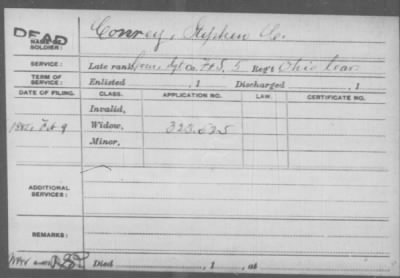 DEAD
NAME OF SOLDIER: Conrey, Stephen C.
SERVICE: Late rank, Sgt Co. F&S, 5 Reg't Ohio Cav.
TERM OF SERVICE: Enlisted , 1 Discharged , 1
DATE OF FILING. CLASS. APPLICATION NO. LAW. CERTIFICATE NO.
Invalid,
Feb 9 Widow, 323.625
Minor,
ADDITIONAL SERVICES:
REMARKS:
Died , 1 , at